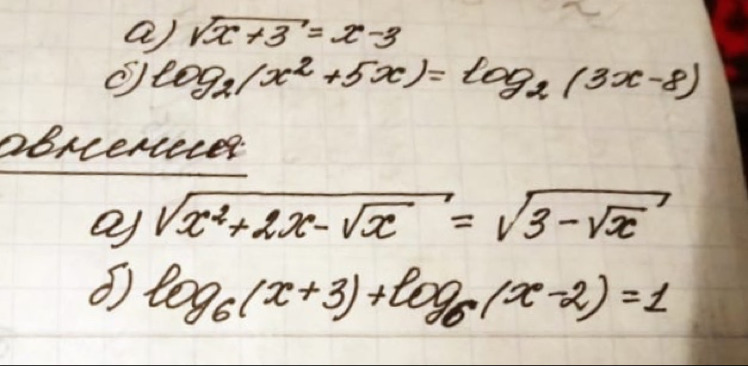 а) √x+3 = x-3
б) log₂(x²+5x) = log₂(3x-8)
авнения:
а) √x²+2x-√x = √3-√x
б) log₆(x+3)+log₆(x-2)=1